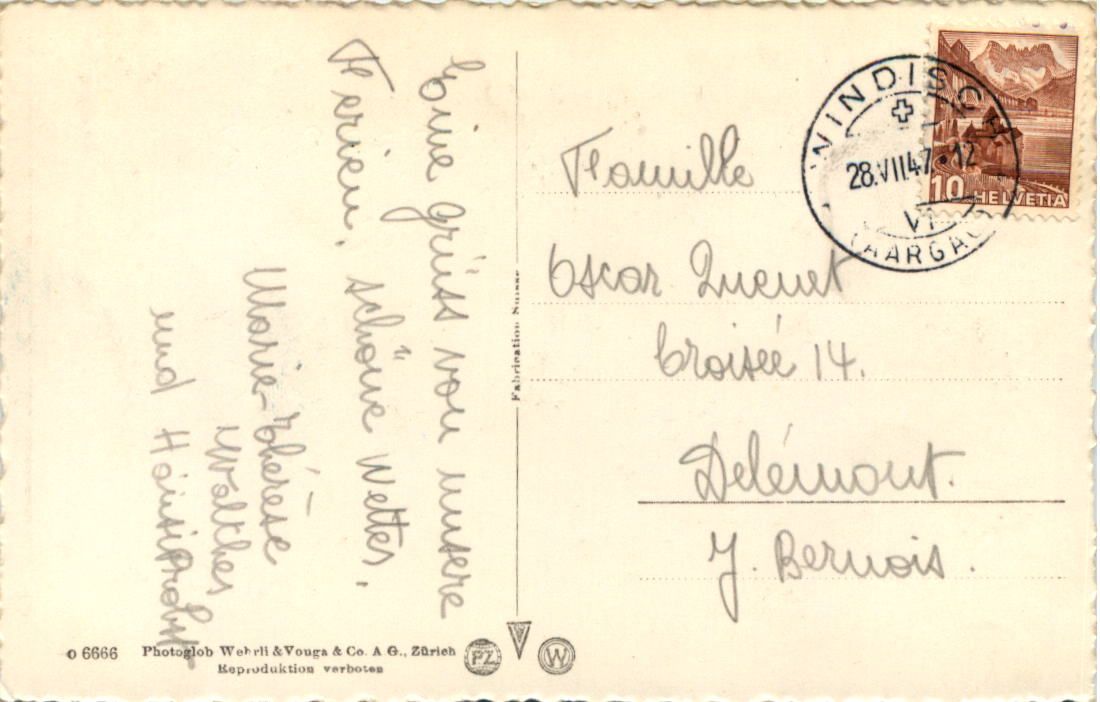 Eine Grüss von unsere
Ferien, schöne Wetter,
Marie-Thérèse
Walther
und Hänsi Probst
Famille
Oscar Quenet
Croisée 14.
Delémont.
J. Bernois.
WINDISCH
28.VII.47.12
(AARGAU)
10 HELVETIA
Fabrication Suisse
O 6666 Photoglob Wehrli & Vouga & Co. A G., Zürich
Reproduktion verboten
PZ
W